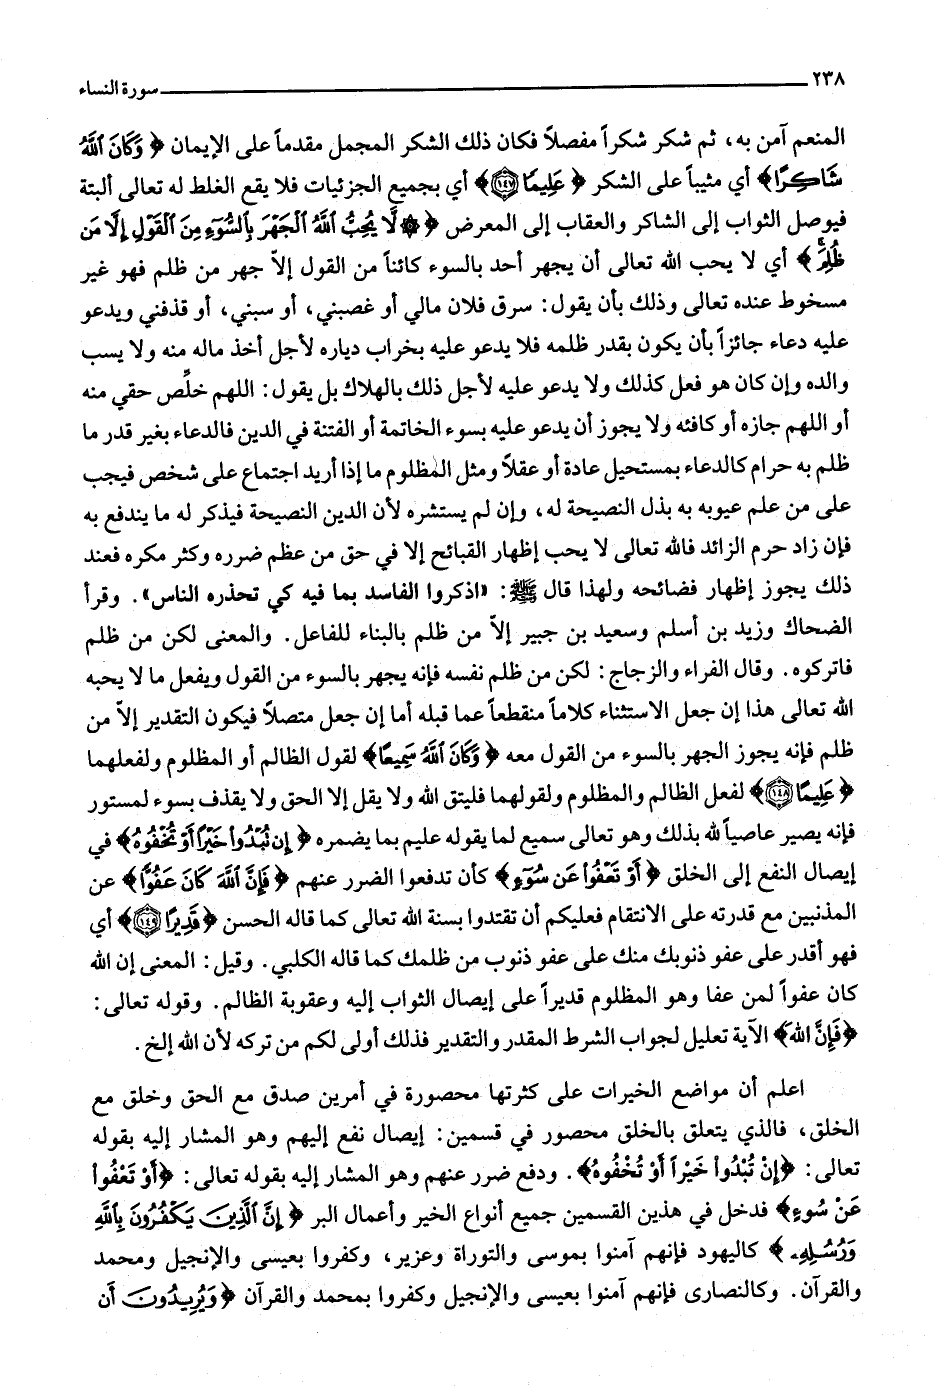 ٢٣٨ سورة النساء
المنعم آمن به، ثم شكر شكراً مفصلاً فكان ذلك الشكر المجمل مقدماً على الإيمان ﴿وَكَانَ ٱللَّهُ
شَاكِرًا﴾ أي مثيباً على الشكر ﴿عَلِيمًا ١٤٧﴾ أي بجميع الجزئيات فلا يقع الغلط له تعالى ألبتة
فيوصل الثواب إلى الشاكر والعقاب إلى المعرض ﴿۞ لَّا يُحِبُّ ٱللَّهُ ٱلْجَهْرَ بِٱلسُّوٓءِ مِنَ ٱلْقَوْلِ إِلَّا مَن
ظُلِمَۚ﴾ أي لا يحب الله تعالى أن يجهر أحد بالسوء كائناً من القول إلاّ جهر من ظلم فهو غير
مسخوط عنده تعالى وذلك بأن يقول: سرق فلان مالي أو غصبني، أو سبني، أو قذفني ويدعو
عليه دعاء جائزاً بأن يكون بقدر ظلمه فلا يدعو عليه بخراب دياره لأجل أخذ ماله منه ولا يسب
والده وإن كان هو فعل كذلك ولا يدعو عليه لأجل ذلك بالهلاك بل يقول: اللهم خلِّص حقي منه
أو اللهم جازه أو كافئه ولا يجوز أن يدعو عليه بسوء الخاتمة أو الفتنة في الدين فالدعاء بغير قدر ما
ظلم به حرام كالدعاء بمستحيل عادة أو عقلاً ومثل المظلوم ما إذا أريد اجتماع على شخص فيجب
على من علم عيوبه به بذل النصيحة له، وإن لم يستشره لأن الدين النصيحة فيذكر له ما يندفع به
فإن زاد حرم الزائد فالله تعالى لا يحب إظهار القبائح إلا في حق من عظم ضرره وكثر مكره فعند
ذلك يجوز إظهار فضائحه ولهذا قال ﷺ: «اذكروا الفاسد بما فيه كي تحذره الناس». وقرأ
الضحاك وزيد بن أسلم وسعيد بن جبير إلاّ من ظلم بالبناء للفاعل. والمعنى لكن من ظلم
فاتركوه. وقال الفراء والزجاج: لكن من ظلم نفسه فإنه يجهر بالسوء من القول ويفعل ما لا يحبه
الله تعالى هذا إن جعل الاستثناء كلاماً منقطعاً عما قبله أما إن جعل متصلاً فيكون التقدير إلاّ من
ظلم فإنه يجوز الجهر بالسوء من القول معه ﴿وَكَانَ ٱللَّهُ سَمِيعًا﴾ لقول الظالم أو المظلوم ولفعلهما
﴿عَلِيمًا ١٤٨﴾ لفعل الظالم والمظلوم ولقولهما فليتق الله ولا يقل إلا الحق ولا يقذف بسوء لمستور
فإنه يصير عاصياً لله بذلك وهو تعالى سميع لما يقوله عليم بما يضمره ﴿إِن تُبْدُوا۟ خَيْرًا أَوْ تُخْفُوهُ﴾ في
إيصال النفع إلى الخلق ﴿أَوْ تَعْفُوا۟ عَن سُوٓءٍ﴾ كأن تدفعوا الضرر عنهم ﴿فَإِنَّ ٱللَّهَ كَانَ عَفُوًّا﴾ عن
المذنبين مع قدرته على الانتقام فعليكم أن تقتدوا بسنة الله تعالى كما قاله الحسن ﴿قَدِيرًا ١٤٩﴾ أي
فهو أقدر على عفو ذنوبك منك على عفو ذنوب من ظلمك كما قاله الكلبي. وقيل: المعنى إن الله
كان عفواً لمن عفا وهو المظلوم قديراً على إيصال الثواب إليه وعقوبة الظالم. وقوله تعالى:
﴿فَإِنَّ اللهَ﴾ الآية تعليل لجواب الشرط المقدر والتقدير فذلك أولى لكم من تركه لأن الله إلخ.
اعلم أن مواضع الخيرات على كثرتها محصورة في أمرين صدق مع الحق وخلق مع
الخلق، فالذي يتعلق بالخلق محصور في قسمين: إيصال نفع إليهم وهو المشار إليه بقوله
تعالى: ﴿إِنْ تُبْدُوا خَيْراً أَوْ تُخْفُوهُ﴾. ودفع ضرر عنهم وهو المشار إليه بقوله تعالى: ﴿أَوْ تَعْفُوا
عَنْ سُوءٍ﴾ فدخل في هذين القسمين جميع أنواع الخير وأعمال البر ﴿إِنَّ ٱلَّذِينَ يَكْفُرُونَ بِٱللَّهِ
وَرُسُلِهِۦ﴾ كاليهود فإنهم آمنوا بموسى والتوراة وعزير، وكفروا بعيسى والإنجيل ومحمد
والقرآن. وكالنصارى فإنهم آمنوا بعيسى والإنجيل وكفروا بمحمد والقرآن ﴿وَيُرِيدُونَ أن